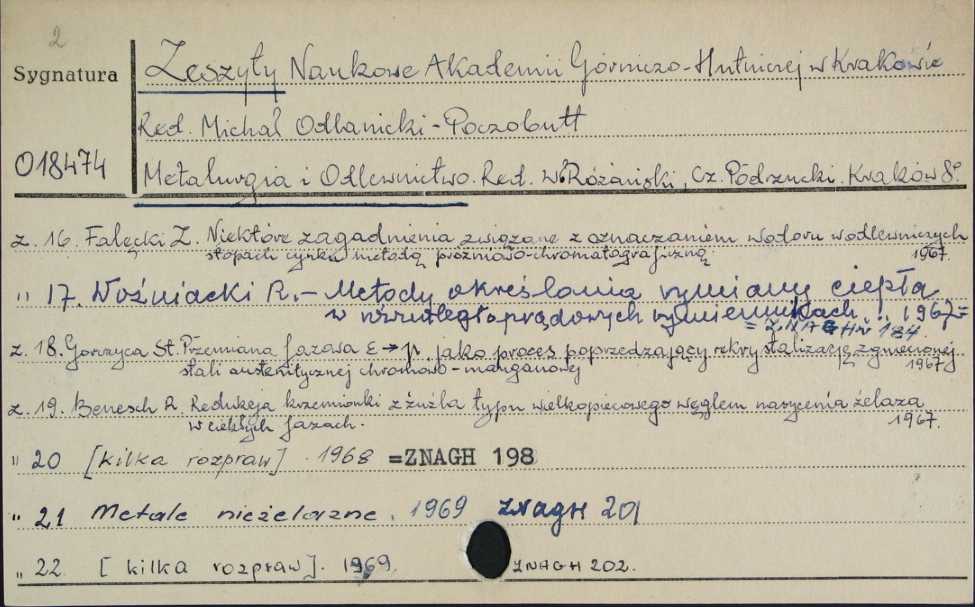 2
Sygnatura
Zeszyty Naukowe Akademii Górniczo-Hutniczej w Krakowie
Red. Michał Odlanicki-Poczobutt
018474
Metalurgia i Odlewnictwo. Red. W. Różański, Cz. Pódrzucki. Kraków 8°
z. 16. Fałęcki Z. Niektóre zagadnienia związane z oznaczaniem wodoru w odlewniczych
stopach cynku metodą próżniowo-chromatograficzną 1967.
" 17. Woźniacki R. - Metody określania wymiany ciepła
w współprądowych wymiennikach... 1967 =
= ZNAGH Nr 184
z. 18. Gorzyca St. Przemiana fazowa ε → γ jako proces poprzedzający rekrystalizację zgniecionej
stali austenitycznej chromowo-manganowej 1967
z. 19. Benesch R. Redukcja krzemionki z żużla typu wielkopiecowego węglem nasycenia żelaza
w ciekłych fazach. 1967.
" 20 [kilka rozpraw] . 1968 =ZNAGH 198
" 21 Metale nieżelazne . 1969 ZNAGH 201
" 22. [kilka rozpraw]. 1969. ZNAGH 202.